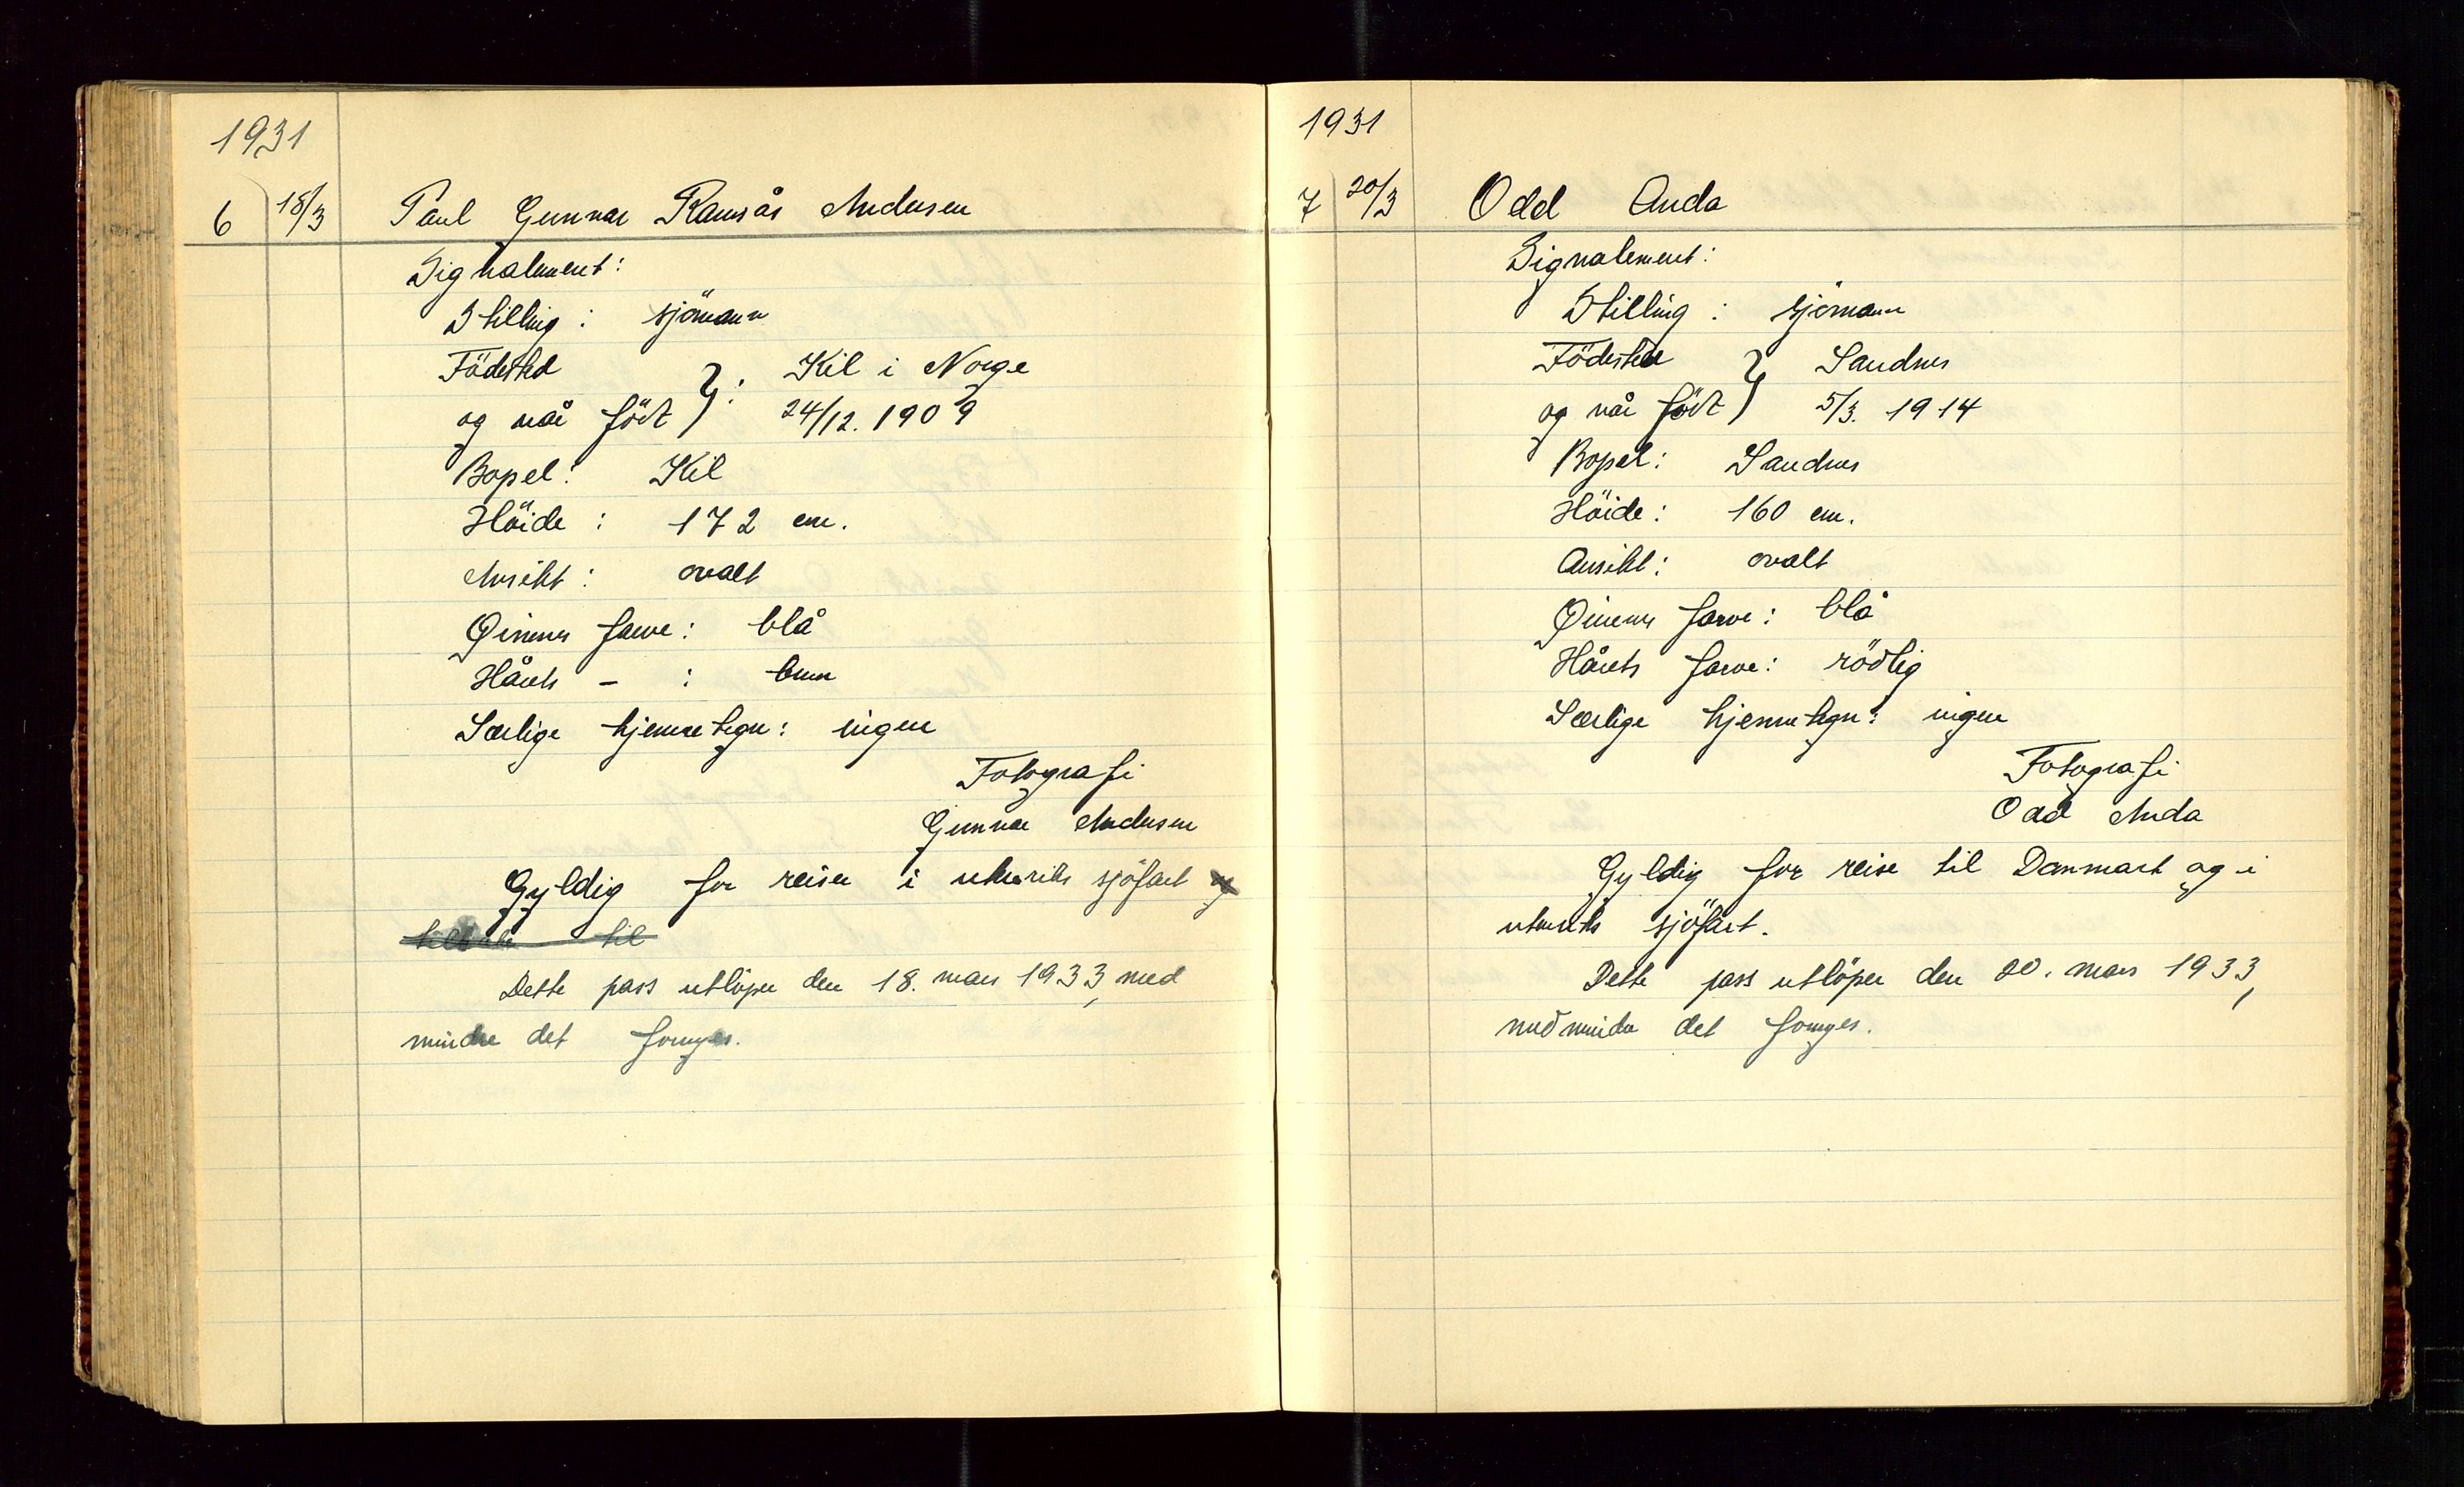 1931
6 18/3 Paul Gunnar Ramsås Andersen
Signalement:
Stilling : sjömann
Födested
og når födt } : Kil i Norge
24/12. 1909
Bopel: Kil
Höide : 172 cm.
Ansikt : ovalt
Øinenes farve : blå
Hårets - : brun
Særlige kjennetegn : ingen
Fotografi
Gunnar Andersen
Gyldig for reiser i utenriks sjöfart og
tilbake til
Dette pass utlöper den 18. mars 1933, med
mindre det fornyes.
1931
7 20/3 Odd Anda
Signalement:
Stilling : sjömann
Födested
og når födt } Sandnes
5/3. 1914
Bopel : Sandnes
Höide : 160 cm.
Ansikt : ovalt
Øinenes farve : blå
Hårets farve : rödlig
Særlige kjennetegn : ingen
Fotografi
Odd Anda
Gyldig for reise til Danmark og i
utenriks sjöfart.
Dette pass utlöper den 20. mars 1933,
med mindre det fornyes.